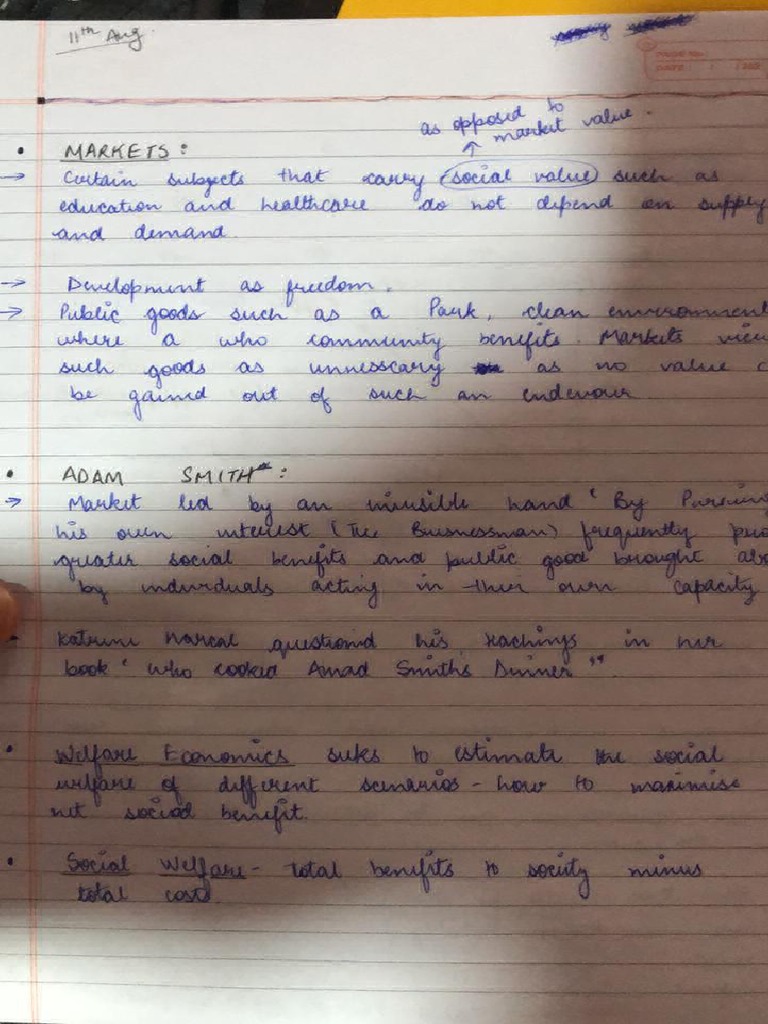 11th Aug
as opposed to
market value.
• MARKETS:
→ Certain subjects that carry (social value) such as
education and healthcare do not depend on supply
and demand.
→ Development as freedom.
→ Public goods such as a Park, clean environment
where a who community benefits. Markets view
such goods as unnesscary as no value
be gained out of such an endevour
• ADAM SMITH:
→ Market led by an invisible hand "By Pursuing
his own interest (The Businessman) frequently
greater social benefits and public good brought
by individuals acting in their own capacity
Katrine Marcal questiond his teachings in her
book "who cooked Amad Smith's Dinner".
• Welfare Economics seeks to estimate the social
welfare of different scenarios - how to maximise
net social benefit.
• Social Welfare - total benefits to society minus
total costs.